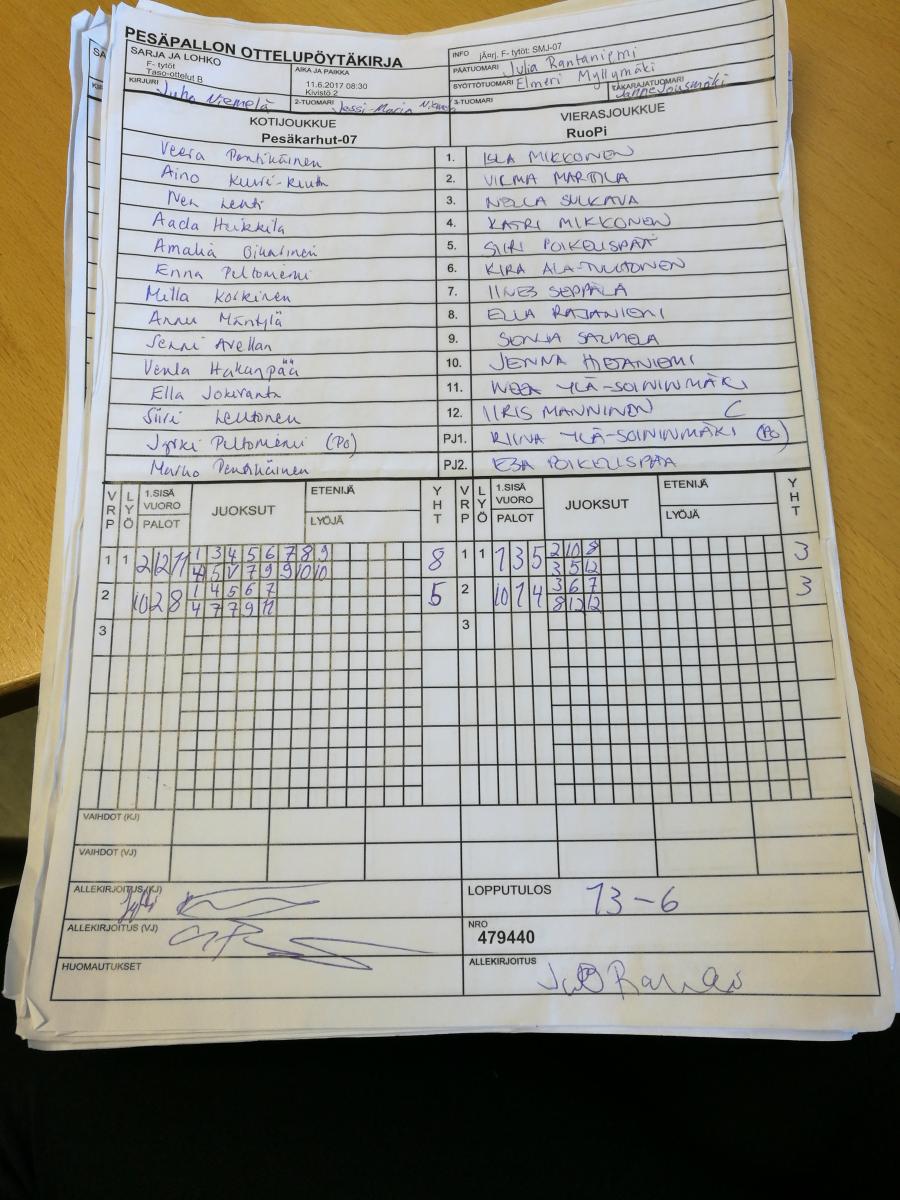 PESÄPALLON OTTELUPÖYTÄKIRJA
SARJA JA LOHKO
F- tytöt
Taso-ottelut B
AIKA JA PAIKKA
11.6.2017 08:30
Kivistö 2
INFO jäarj. F- tytöt: SMJ-07
PÄÄTUOMARI Julia Rantaniemi
SYÖTTÖTUOMARI Elmeri Myllymäki
KIRJURI Juha Niemelä
2-TUOMARI Jessi-Maria
3-TUOMARI
TAKARAJATUOMARI
KOTIJOUKKUE VIERASJOUKKUE
Pesäkarhut-07 RuoPi
Veera Pentikäinen 1. ISLA MIKKONEN
Aino 2. VILMA MARTILA
Lehti 3. NELLA SULKAVA
Aada Heikkilä 4. KATRI MIKKONEN
Amalia 5. SIIRI POIKELISPÄÄ
Enna Peltoniemi 6. KIRA ALA-TUUTONEN
Milla Koskinen 7. IINES SEPPÄLÄ
Annu Mäntylä 8. ELLA RAJANIEMI
Senni Avellan 9. SONJA SALMELA
Venla Hakanpää 10. JENNA HIETANIEMI
Ella Jokiranta 11. YLÄ-SOININMÄKI
Siiri Lehtonen 12. IIRIS MANNINEN C
Jyrki Peltoniemi (Po) PJ1. RIINA YLÄ-SOININMÄKI (Po)
Marko Pentikäinen PJ2. ESA POIKELISPÄÄ
VRP LYÖ 1.SISÄ VUORO PALOT JUOKSUT ETENIJÄ LYÖJÄ YHT VRP LYÖ 1.SISÄ VUORO PALOT JUOKSUT ETENIJÄ LYÖJÄ YHT
1 1 2 12 11 1 3 4 5 6 7 8 9 8 1 1 1 3 5 2 10 8 3
4 5 V 7 9 9 10 10 3 5 12
2 10 2 8 1 4 5 6 7 5 2 10 1 4 3 6 7 3
4 7 7 9 11 8 12 12
3 3
VAIHDOT (KJ)
VAIHDOT (VJ)
ALLEKIRJOITUS (KJ) LOPPUTULOS 13-6
ALLEKIRJOITUS (VJ) NRO
479440
HUOMAUTUKSET ALLEKIRJOITUS